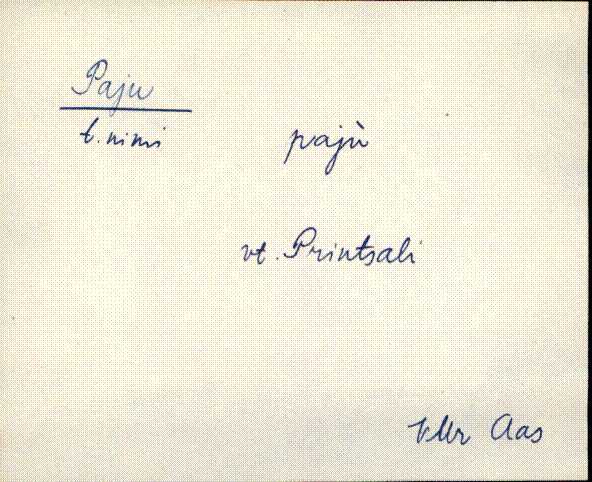 Paju
t. nimi pajù
vt. Printsali
VMr Aas